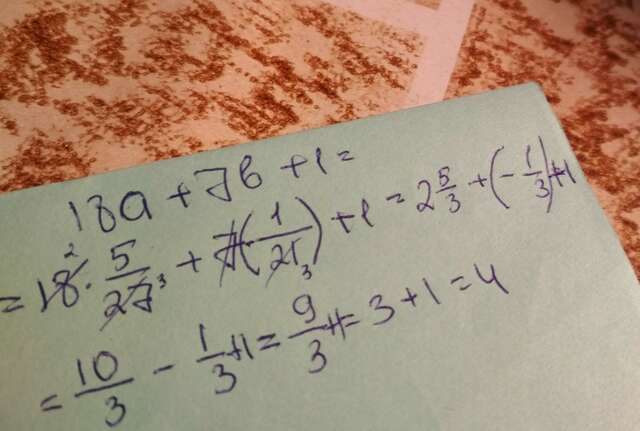 18a + 7b + 1 =
= 18² · 5/27₃ + 7(-1/21₃) + 1 = 2 5/3 + (-1/3) + 1
= 10/3 - 1/3 + 1 = 9/3 + 1 = 3 + 1 = 4